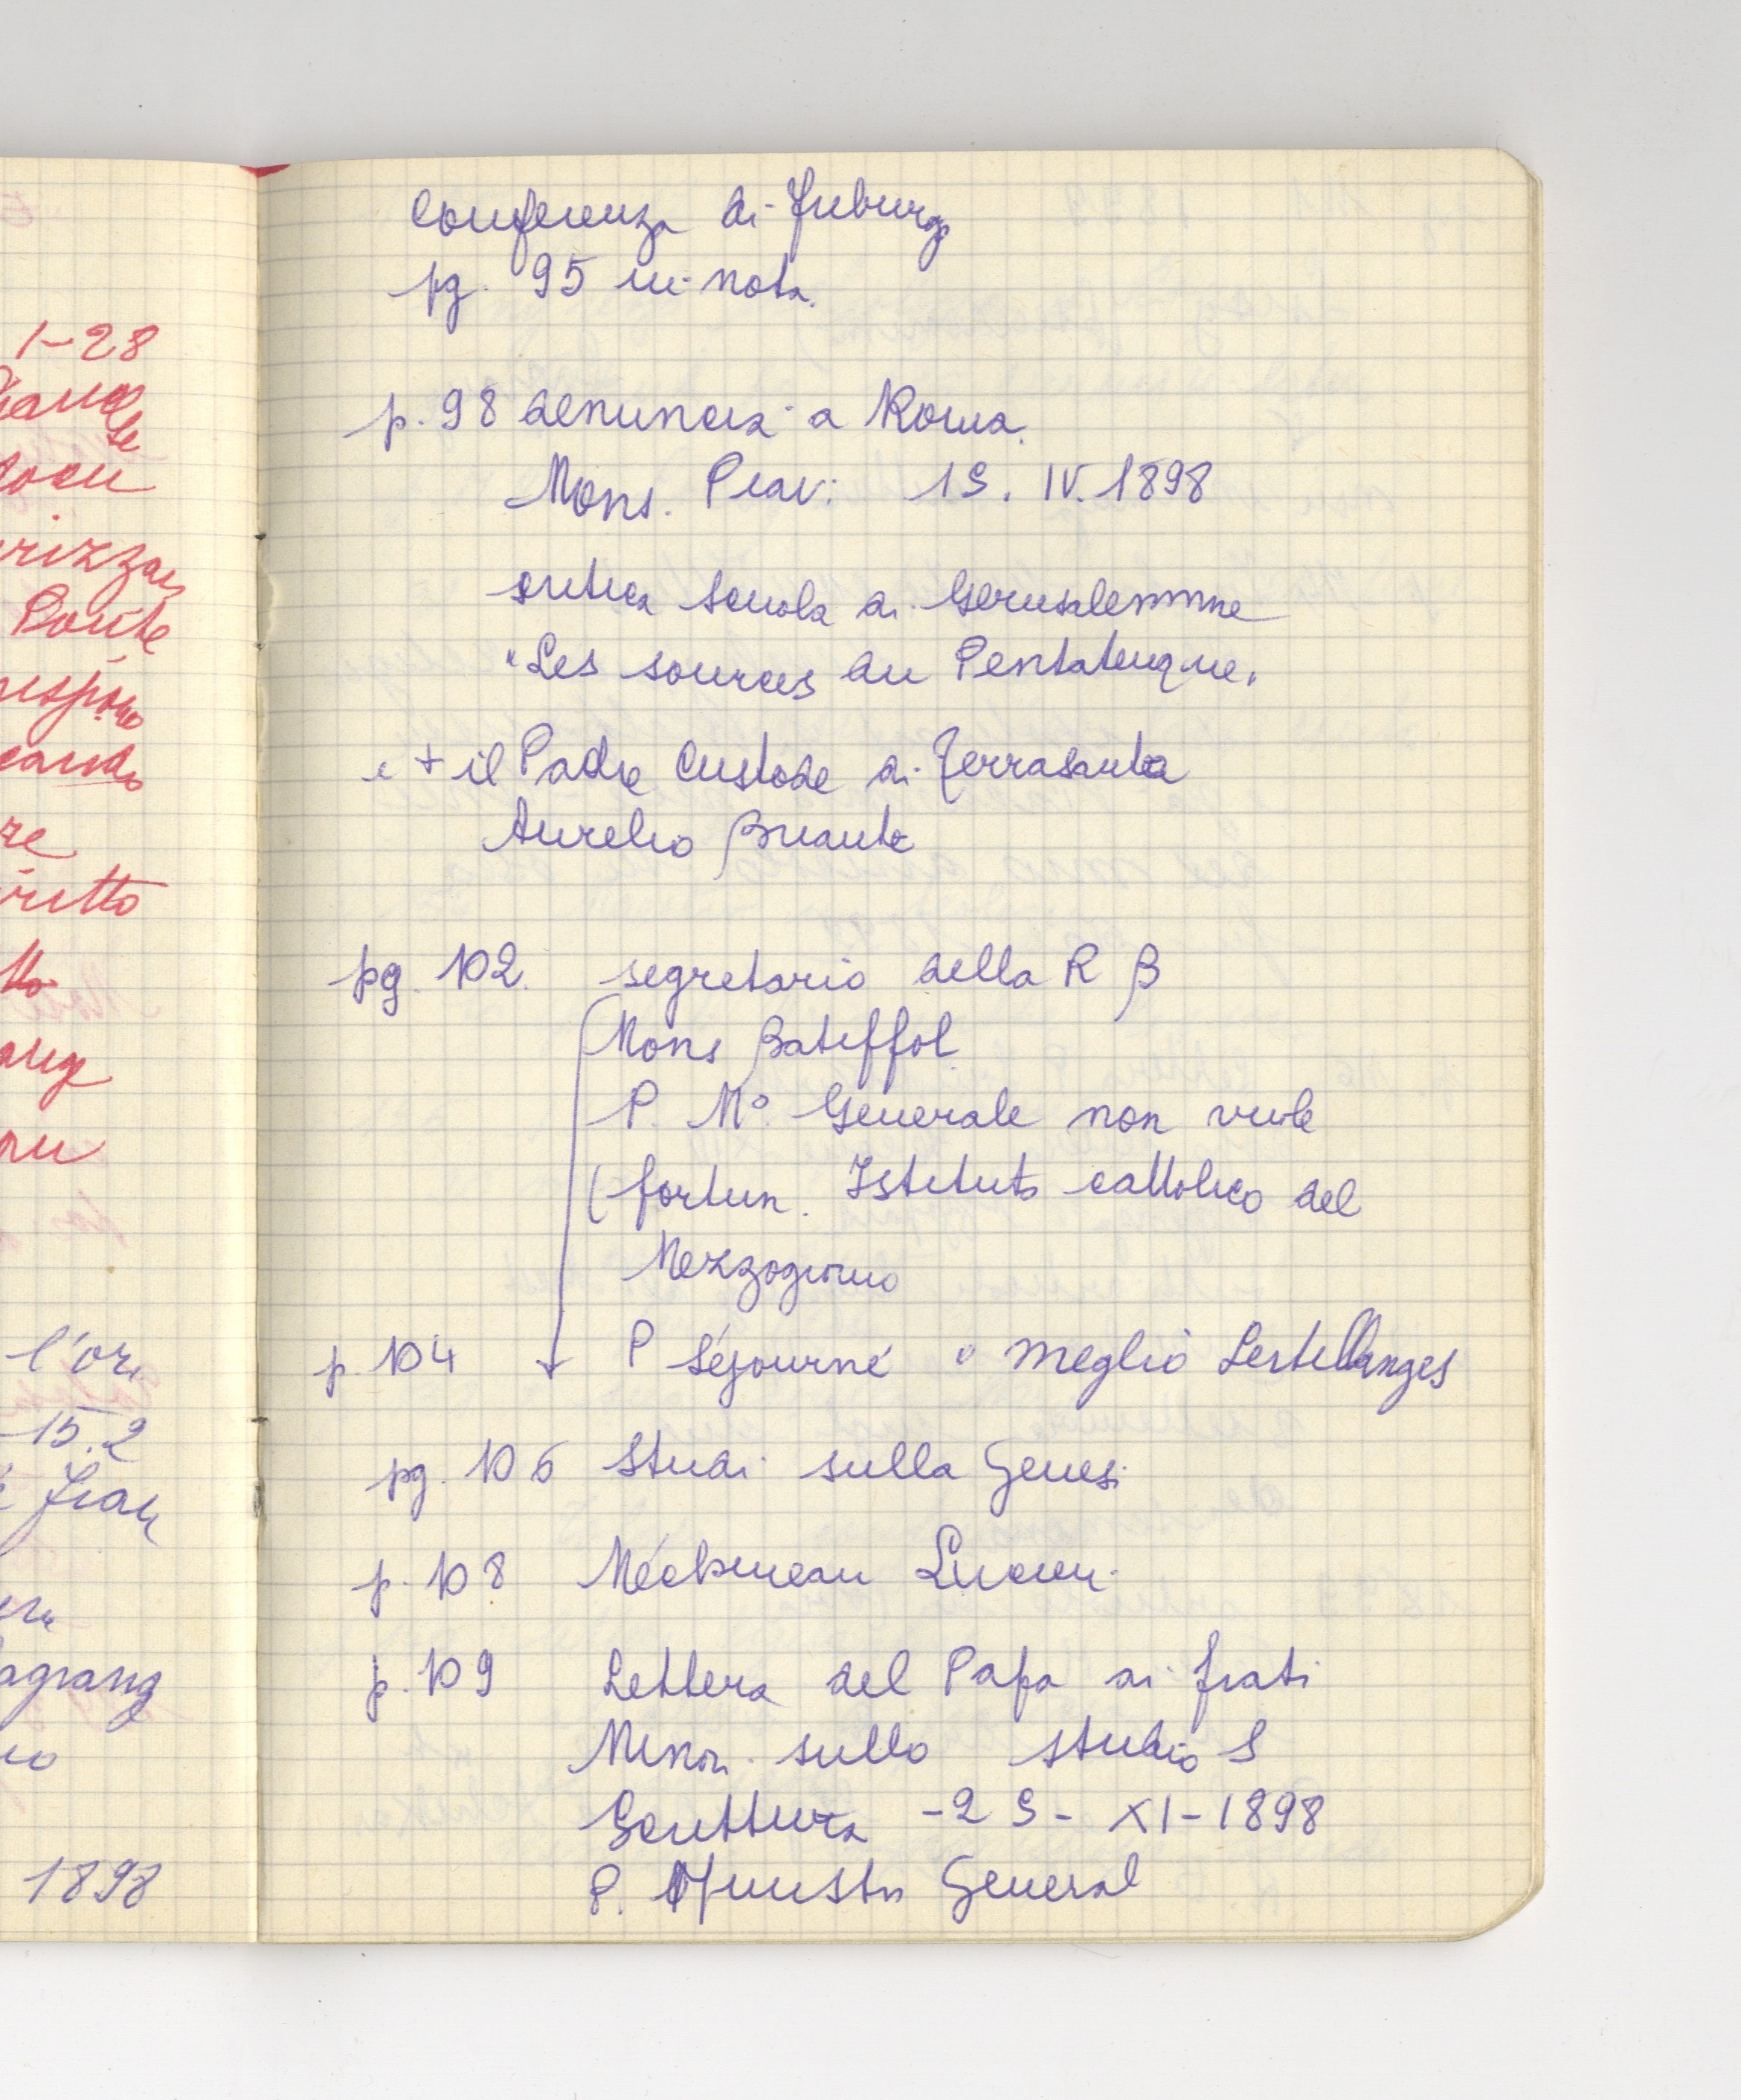 1-28
Ponte
ritto
l'or
15.2
1898
conferenza di Friburgo
pg. 95 in nota.
p. 98 denuncia a Roma.
Mons. Piavi 19. IV. 1898
critica scuola di Gerusalemme
"Les sources du Pentateuque"
e + il Padre Custode di Terrasanta
Aurelio Briante
pg. 102. segretario della R B
Mons Batiffol
P. M° Generale non vuole
(fortun. Istituto cattolico del
Mezzogiorno
p. 104 P Séjourné o meglio Sertillanges
pg. 106 Studi sulla Genesi
p. 108 Méchineau Lucien
p. 109 Lettera del Papa ai frati
Minori sullo studio S
Scrittura - 25 - XI - 1898
P. Ministro General